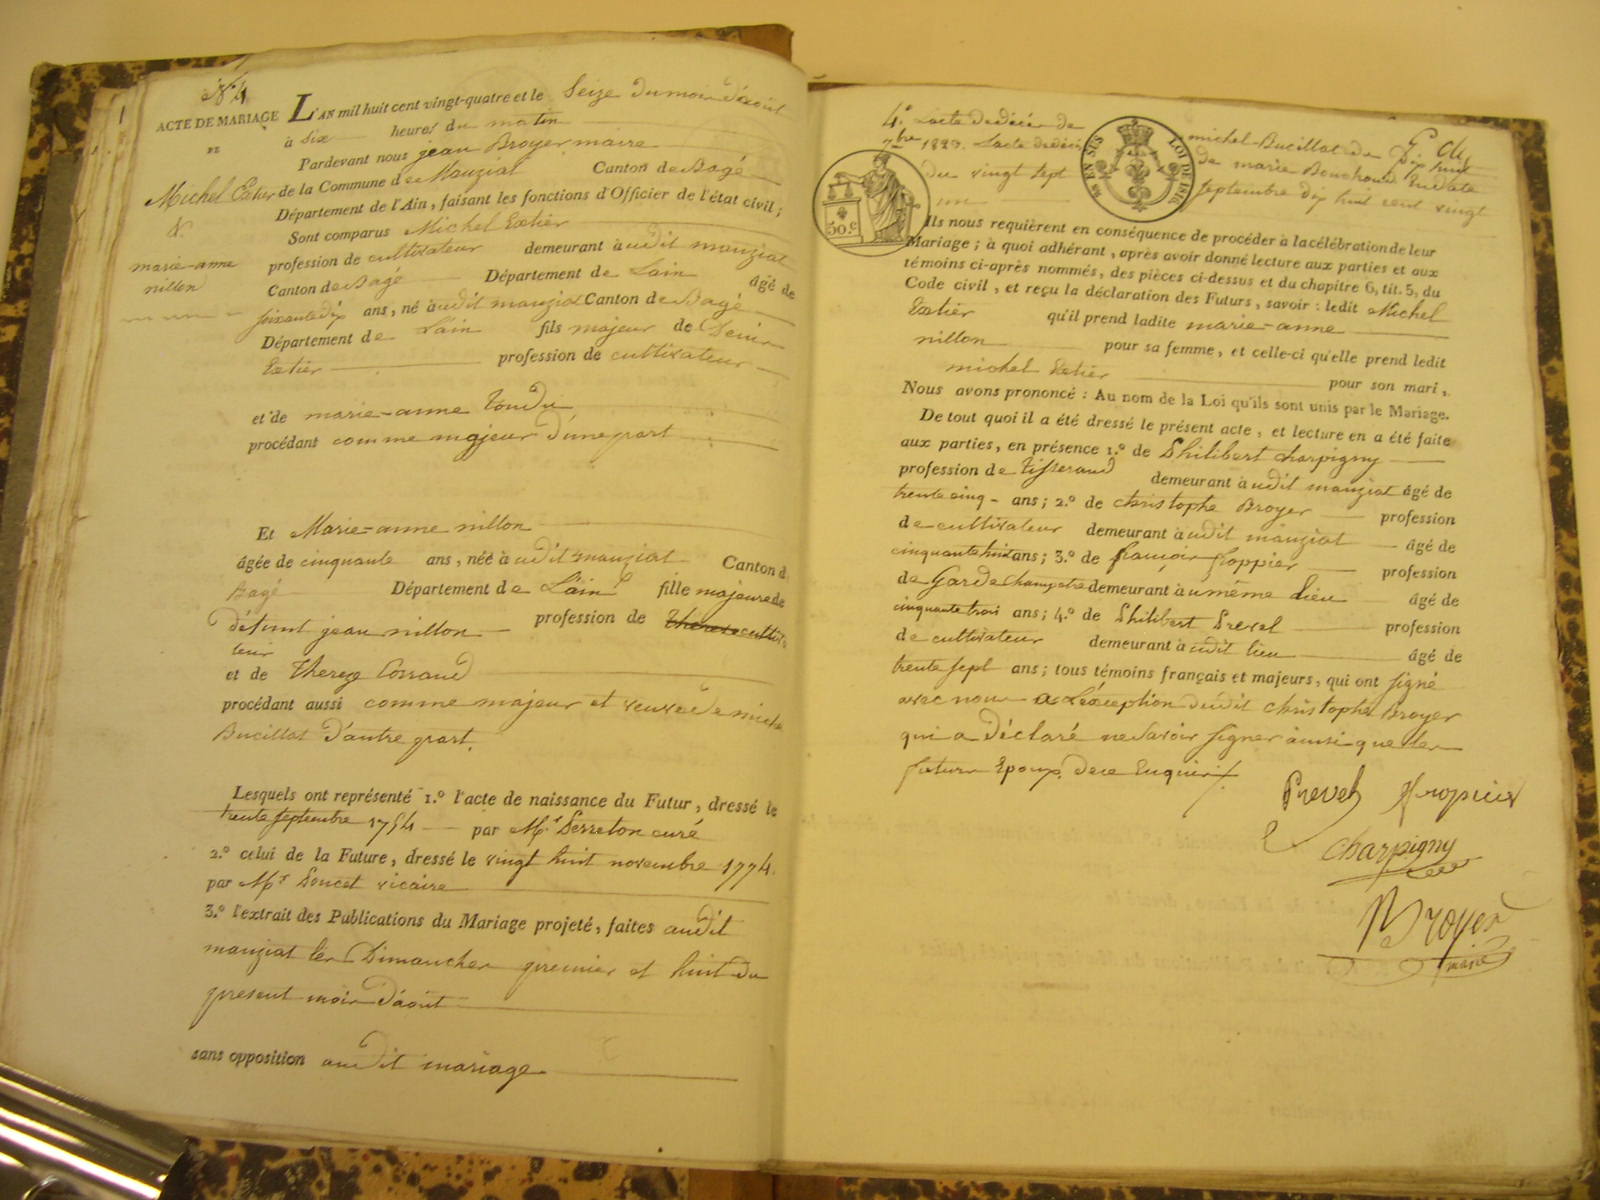 N.º 4
ACTE DE MARIAGE
Michel Extier
&
marie-anne
nillon
L'AN mil huit cent vingt-quatre et le Seize du mois d'août
à Six heures du matin
Pardevant nous jean Broyer maire
de la Commune de Manziat Canton de Bagé
Département de l'Ain, faisant les fonctions d'Officier de l'état civil;
Sont comparus Michel Extier
profession de cultivateur demeurant à udit manziat
Canton de Bagé Département de Lain âgé de
soixante dix ans, né à udit manziat Canton de Bagé
Département de Lain fils majeur de Denis
Extier profession de cultivateur
et de marie-anne
procédant comme majeur d'une part
Et Marie-anne nillon
âgée de cinquante ans, née à udit manziat Canton d
Bagé Département de Lain fille majeure de
défunt jean nillon profession de Therese cultiva
teur
et de Thereze
procédant aussi comme majeur et veuve de miche
Bucillat d'autre part.
Lesquels ont représenté 1.º l'acte de naissance du Futur, dressé le
trente septembre 1754 par Mr Perreton curé
2.º celui de la Future, dressé le vingt huit novembre 1774.
par Mr Poncet vicaire
3.º l'extrait des Publications du Mariage projeté, faites audit
manziat les Dimanches premier et huit du
present mois d'août
sans opposition audit mariage
4.º Lacte dedécès de michel Bucillat du dix huit
7bre 1823. Lacte dedécès de marie
du vingt sept septembre dix huit cent vingt
un
50.C
LOI DE 1816
Ils nous requièrent en conséquence de procéder à la célébration de leur
Mariage; à quoi adhérant, après avoir donné lecture aux parties et aux
témoins ci-après nommés, des pièces ci-dessus et du chapitre 6, tit. 5, du
Code civil, et reçu la déclaration des Futurs, savoir: ledit Michel
Extier qu'il prend ladite marie-anne
nillon pour sa femme, et celle-ci qu'elle prend ledit
michel Extier pour son mari,
Nous avons prononcé: Au nom de la Loi qu'ils sont unis par le Mariage.
De tout quoi il a été dressé le présent acte, et lecture en a été faite
aux parties, en présence 1.º de Philibert charpigny
profession de tisserand demeurant à udit manziat âgé de
trente cinq ans; 2.º de christophe Broyer profession
de cultivateur demeurant à udit manziat âgé de
cinquante huit ans; 3.º de françois froppier profession
de Garde champetre demeurant à u même Lieu âgé de
cinquante trois ans; 4.º de Philibert Prevel profession
de cultivateur demeurant à udit lieu âgé de
trente sept ans; tous témoins français et majeurs, qui ont signé
avec nous a Léxception dudit christophe Broyer
qui a déclaré ne savoir signer ainsi que les
futurs Epoux. dece Enquis
Prevel froppier
charpigny
Broyer
maire